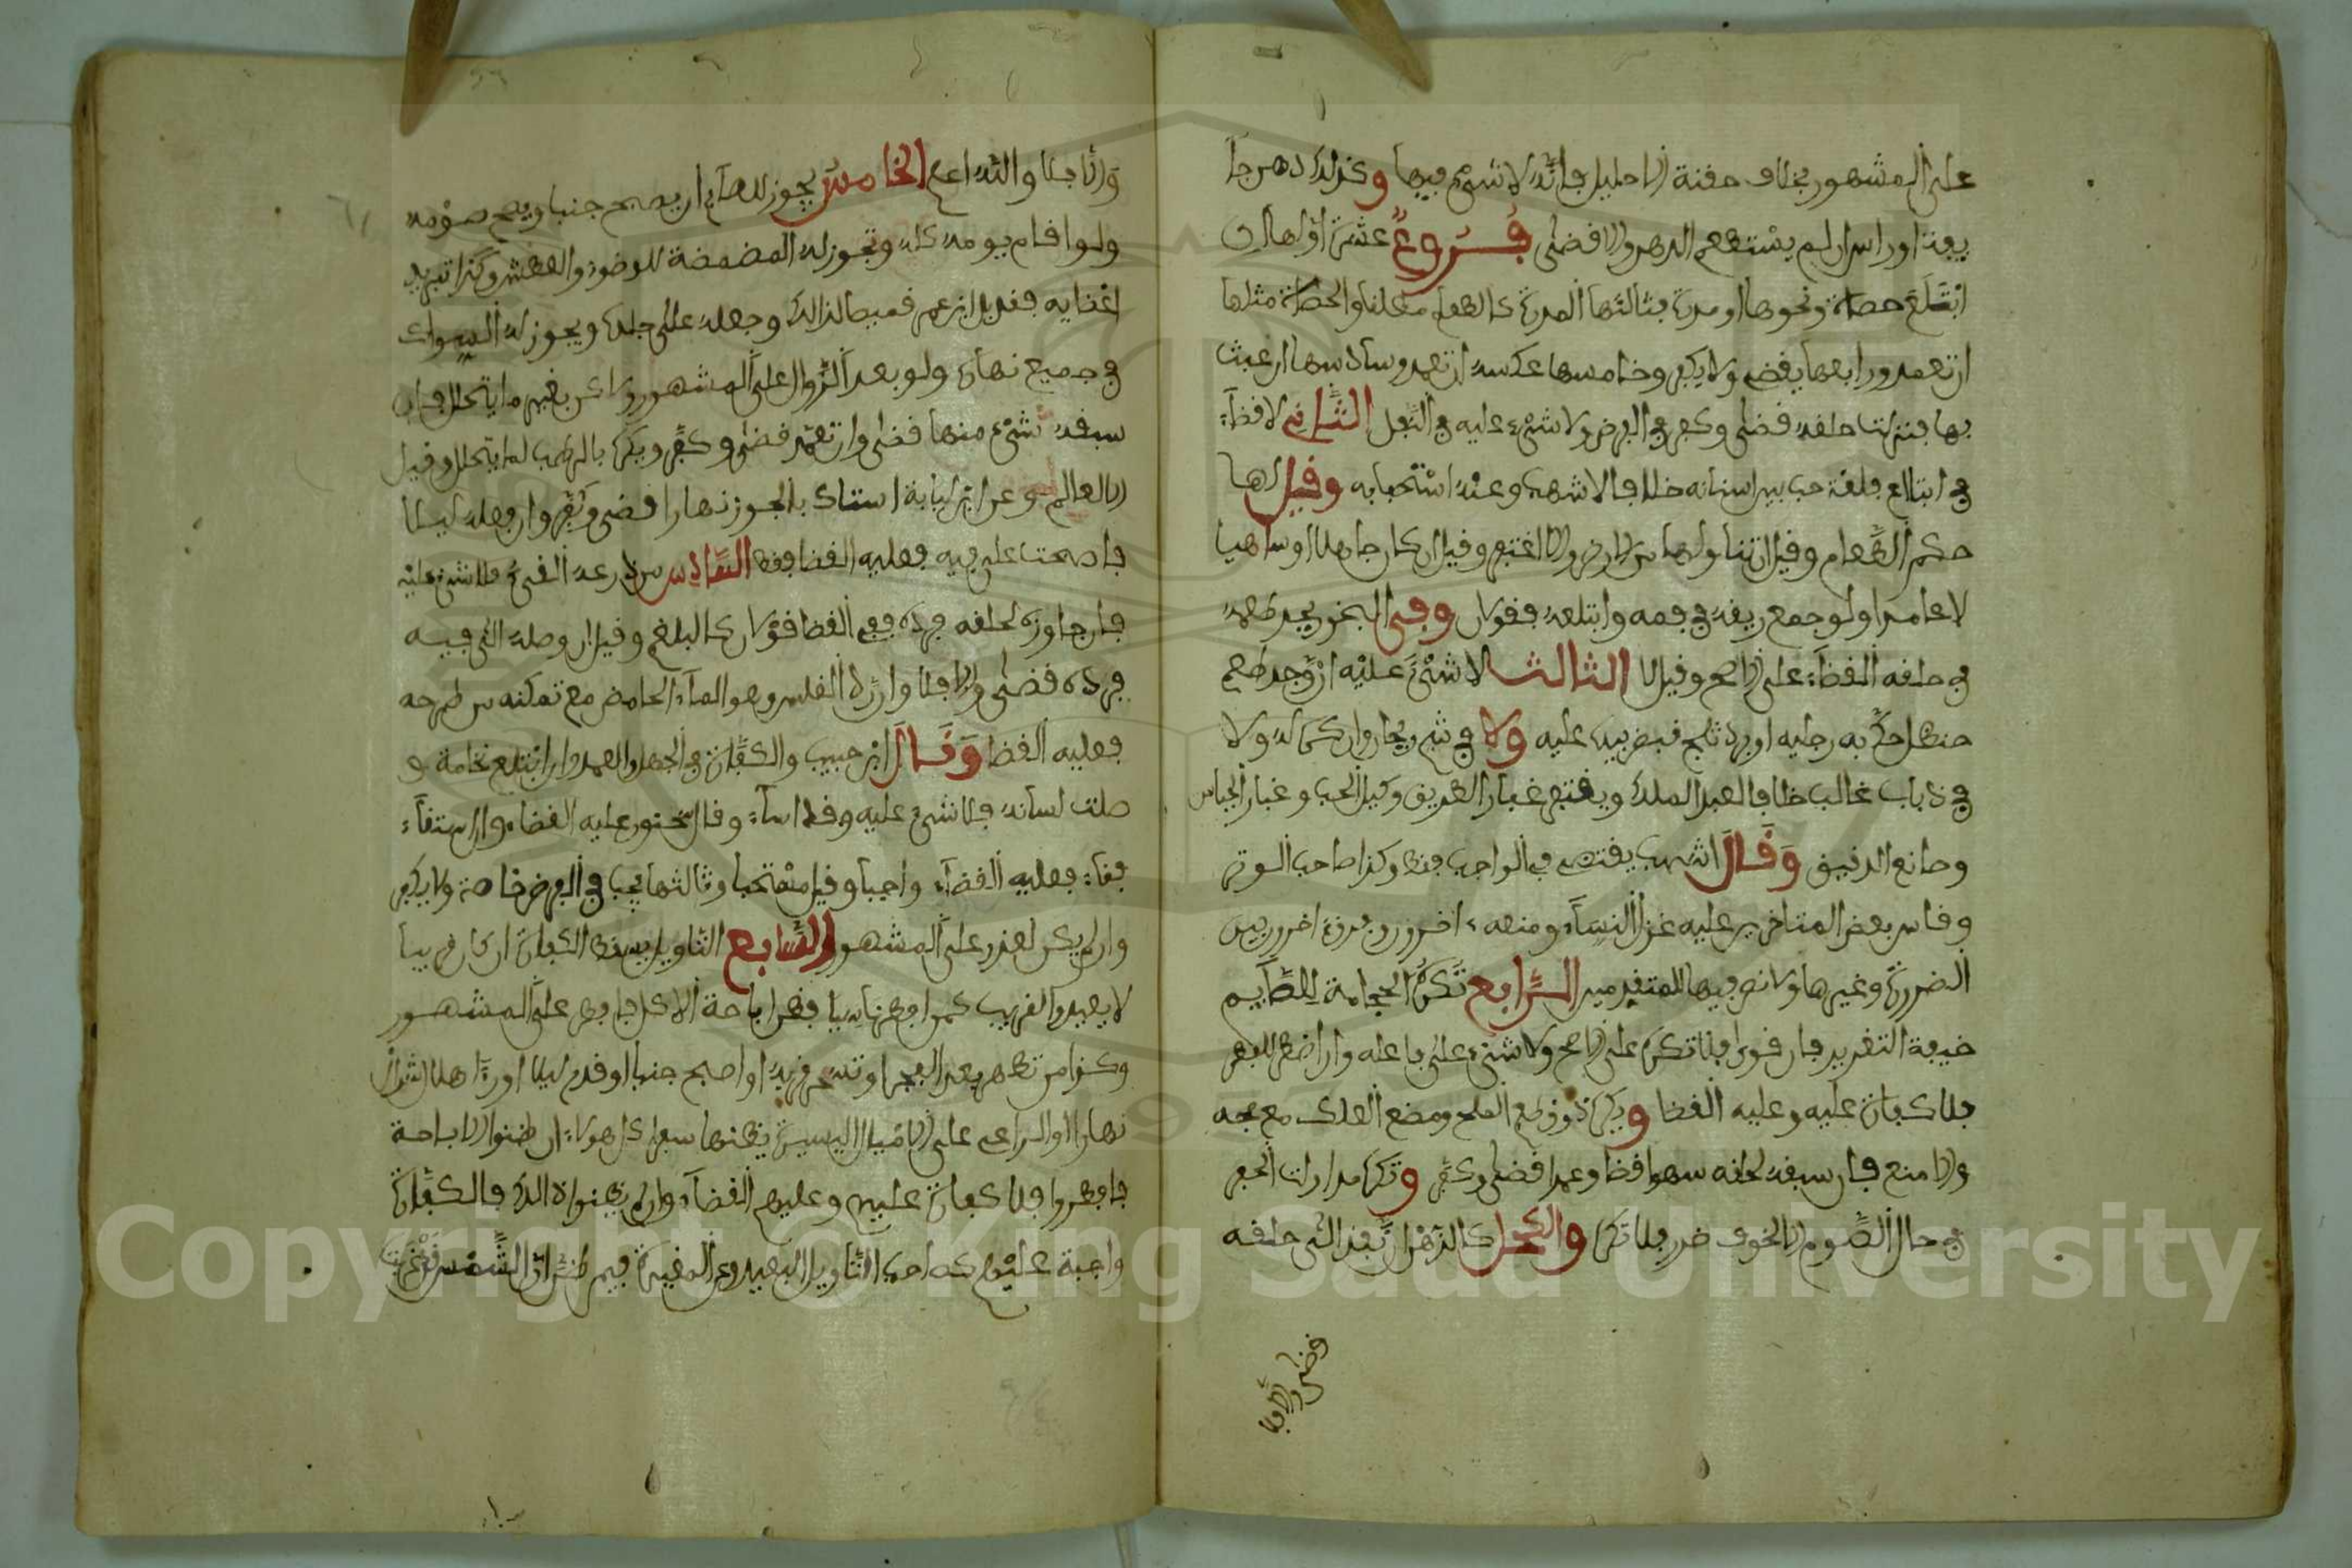 على المشهور بخلاف حقنة الاحليل فانه لا شيء فيها وكذلك دهن جا
يفة او راس ان لم يستطعم الدهن والا قضى فروع عشرة اولها ان
ابتلع حصاة ونحوها او مدرة فثالثها المدرة كالطعام مطلقا والحصاة مثلها
ان تعمد ورابعها يقضي ولا يكفر وخامسها عكسه ان تعمد وسادسها ان عبث
بها فنزلت حلقه قضى وكفر في الفرض ولا شيء عليه في النفل الثاني لا قضاء
في ابتلاع فلقة حب بين اسنانه خلافا لاشهب وعنه استحبابه وقيل لها
حكم الطعام وقيل ان تناولها من الارض والا اغتفر وقيل ان كان جاهلا او ساهيا
لا عامدا ولو جمع ريقه في فمه وابتلعه فقولان وفي البخور يجد طعمه
في حلقه القضاء على الاصح وقيل لا الثالث لا شيء عليه ان وجد طعم
حنظل حك به رجليه او برد ثلج قبض بيده عليه ولا في شم ريحان وان كره له ولا
في ذباب غالب خلافا لعبد الملك ويغتفر غبار الطريق وكيل الحب وغبار الجباس
وصانع الدقيق وقال اشهب يغتفر في الواجب فقط وكذا صاحب السوق
وقاس بعض المتاخرين عليه غزل النساء ومنعه اخرون وفرق اخرون بين
الضرورة وغيرها ولا نص فيها للمتقدمين الرابع تكره الحجامة للصايم
خيفة التغرير فان قوي فلا تكره على الاصح ولا شيء على فاعله وان اضطر للفطر
فلا كفارة عليه وعليه القضا ويكره ذوق طعم الملح ومضغ العلك مع مجه
والا منع فان سبقه لحلقه سهوا قضا وعمدا قضى وكفر وتكره مداواة الحفر
في حال الصوم الا لخوف ضرر فلا تكره والكحل كالدهن ان نفذ الى حلقه
قضى والا فلا
والا فلا والله اعلم الخامس يجوز للصايم ان يصبح جنبا ويصح صومه
ولو اقام يومه كله وتجوز له المضمضة للوضوء والعطش وكذا تبريد
اعضايه فقد بل ابن عمر قميصا لذالك وجعله على جلده ويجوز له السواك
في جميع نهاره ولو بعد الزوال على المشهور ولاكن بغير ما يتحلل فان
سبقه شيء منها قضى وان تعمد قضى وكفر ويكره بالرطب لما يتحلل وقيل
الا لعالم وعن ابن لبابة استاك بالجوز نهارا قضى وكفر وان فعله ليلا
فاصبحت على فيه فعليه القضا فقط السادس من ذرعه القيء فلا شيء عليه
فان جاوزه لحلقه فرده ففي القضا قولان كالبلغم وقيل ان وصله الى فيه
فرده قضى والا فلا وان رد القلس وهو الماء الحامض مع تمكنه من طرحه
فعليه القضا وقال ابن حبيب والكفارة في الجهل والعمد وان ابتلع نخامة و
صلت لسانه فلا شيء عليه وقد اساء وقال سحنون عليه القضاء وان استقاء
فقاء فعليه القضاء واجبا وقيل مستحبا وثالثها يجب في الفرض خاصة ولا يكفر
وان لم يكن لعذر على المشهور السابع التاويل يسقط الكفارة ان كان قريبا
لا بعيدا والقريب كمن افطر ناسيا فظن اباحة الاكل فافطر على المشهور
وكذا من تطهر بعد الفجر او تسحر قربه او اصبح جنبا او قدم ليلا او رءا هلال شوال
نهارا او الراعي على الاميال اليسيرة يظنها سفرا كل هولاء ان ظنوا الاباحة
فافطروا فلا كفارة عليهم وعليهم القضاء وان لم يظنوا ذالك فالكفارة
واجبة عليهم كصاحب التاويل البعيد وعن المغيرة فيمن ظن ان الشمس قد غربت